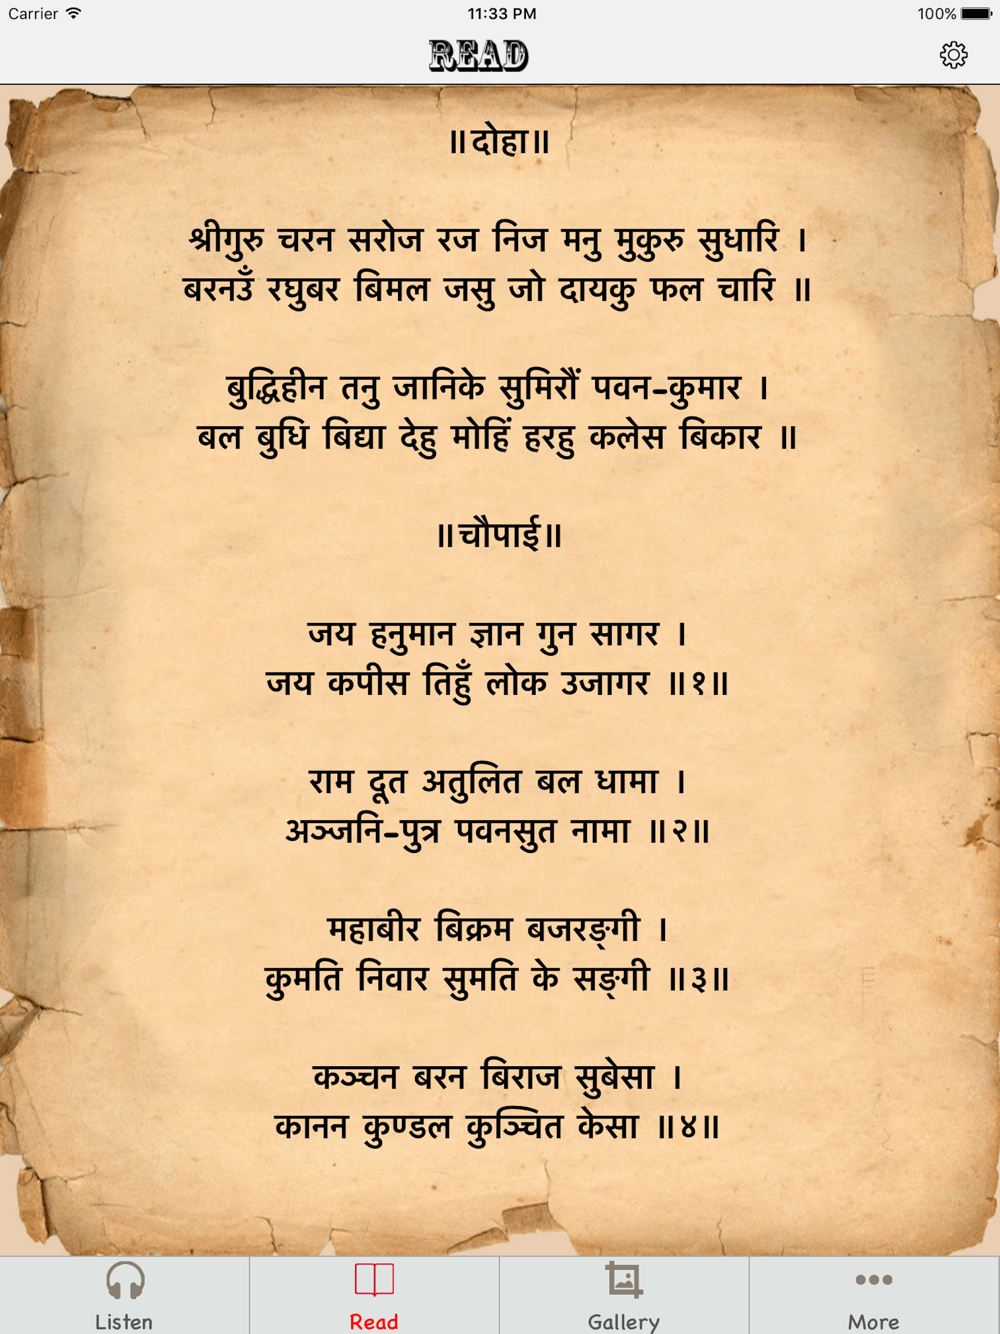 Carrier 11:33 PM 100%
READ
॥दोहा॥
श्रीगुरु चरन सरोज रज निज मनु मुकुरु सुधारि ।
बरनउँ रघुबर बिमल जसु जो दायकु फल चारि ॥
बुद्धिहीन तनु जानिके सुमिरौं पवन-कुमार ।
बल बुधि बिद्या देहु मोहिं हरहु कलेस बिकार ॥
॥चौपाई॥
जय हनुमान ज्ञान गुन सागर ।
जय कपीस तिहुँ लोक उजागर ॥१॥
राम दूत अतुलित बल धामा ।
अञ्जनि-पुत्र पवनसुत नामा ॥२॥
महाबीर बिक्रम बजरङ्गी ।
कुमति निवार सुमति के सङ्गी ॥३॥
कञ्चन बरन बिराज सुबेसा ।
कानन कुण्डल कुञ्चित केसा ॥४॥
Listen Read Gallery More